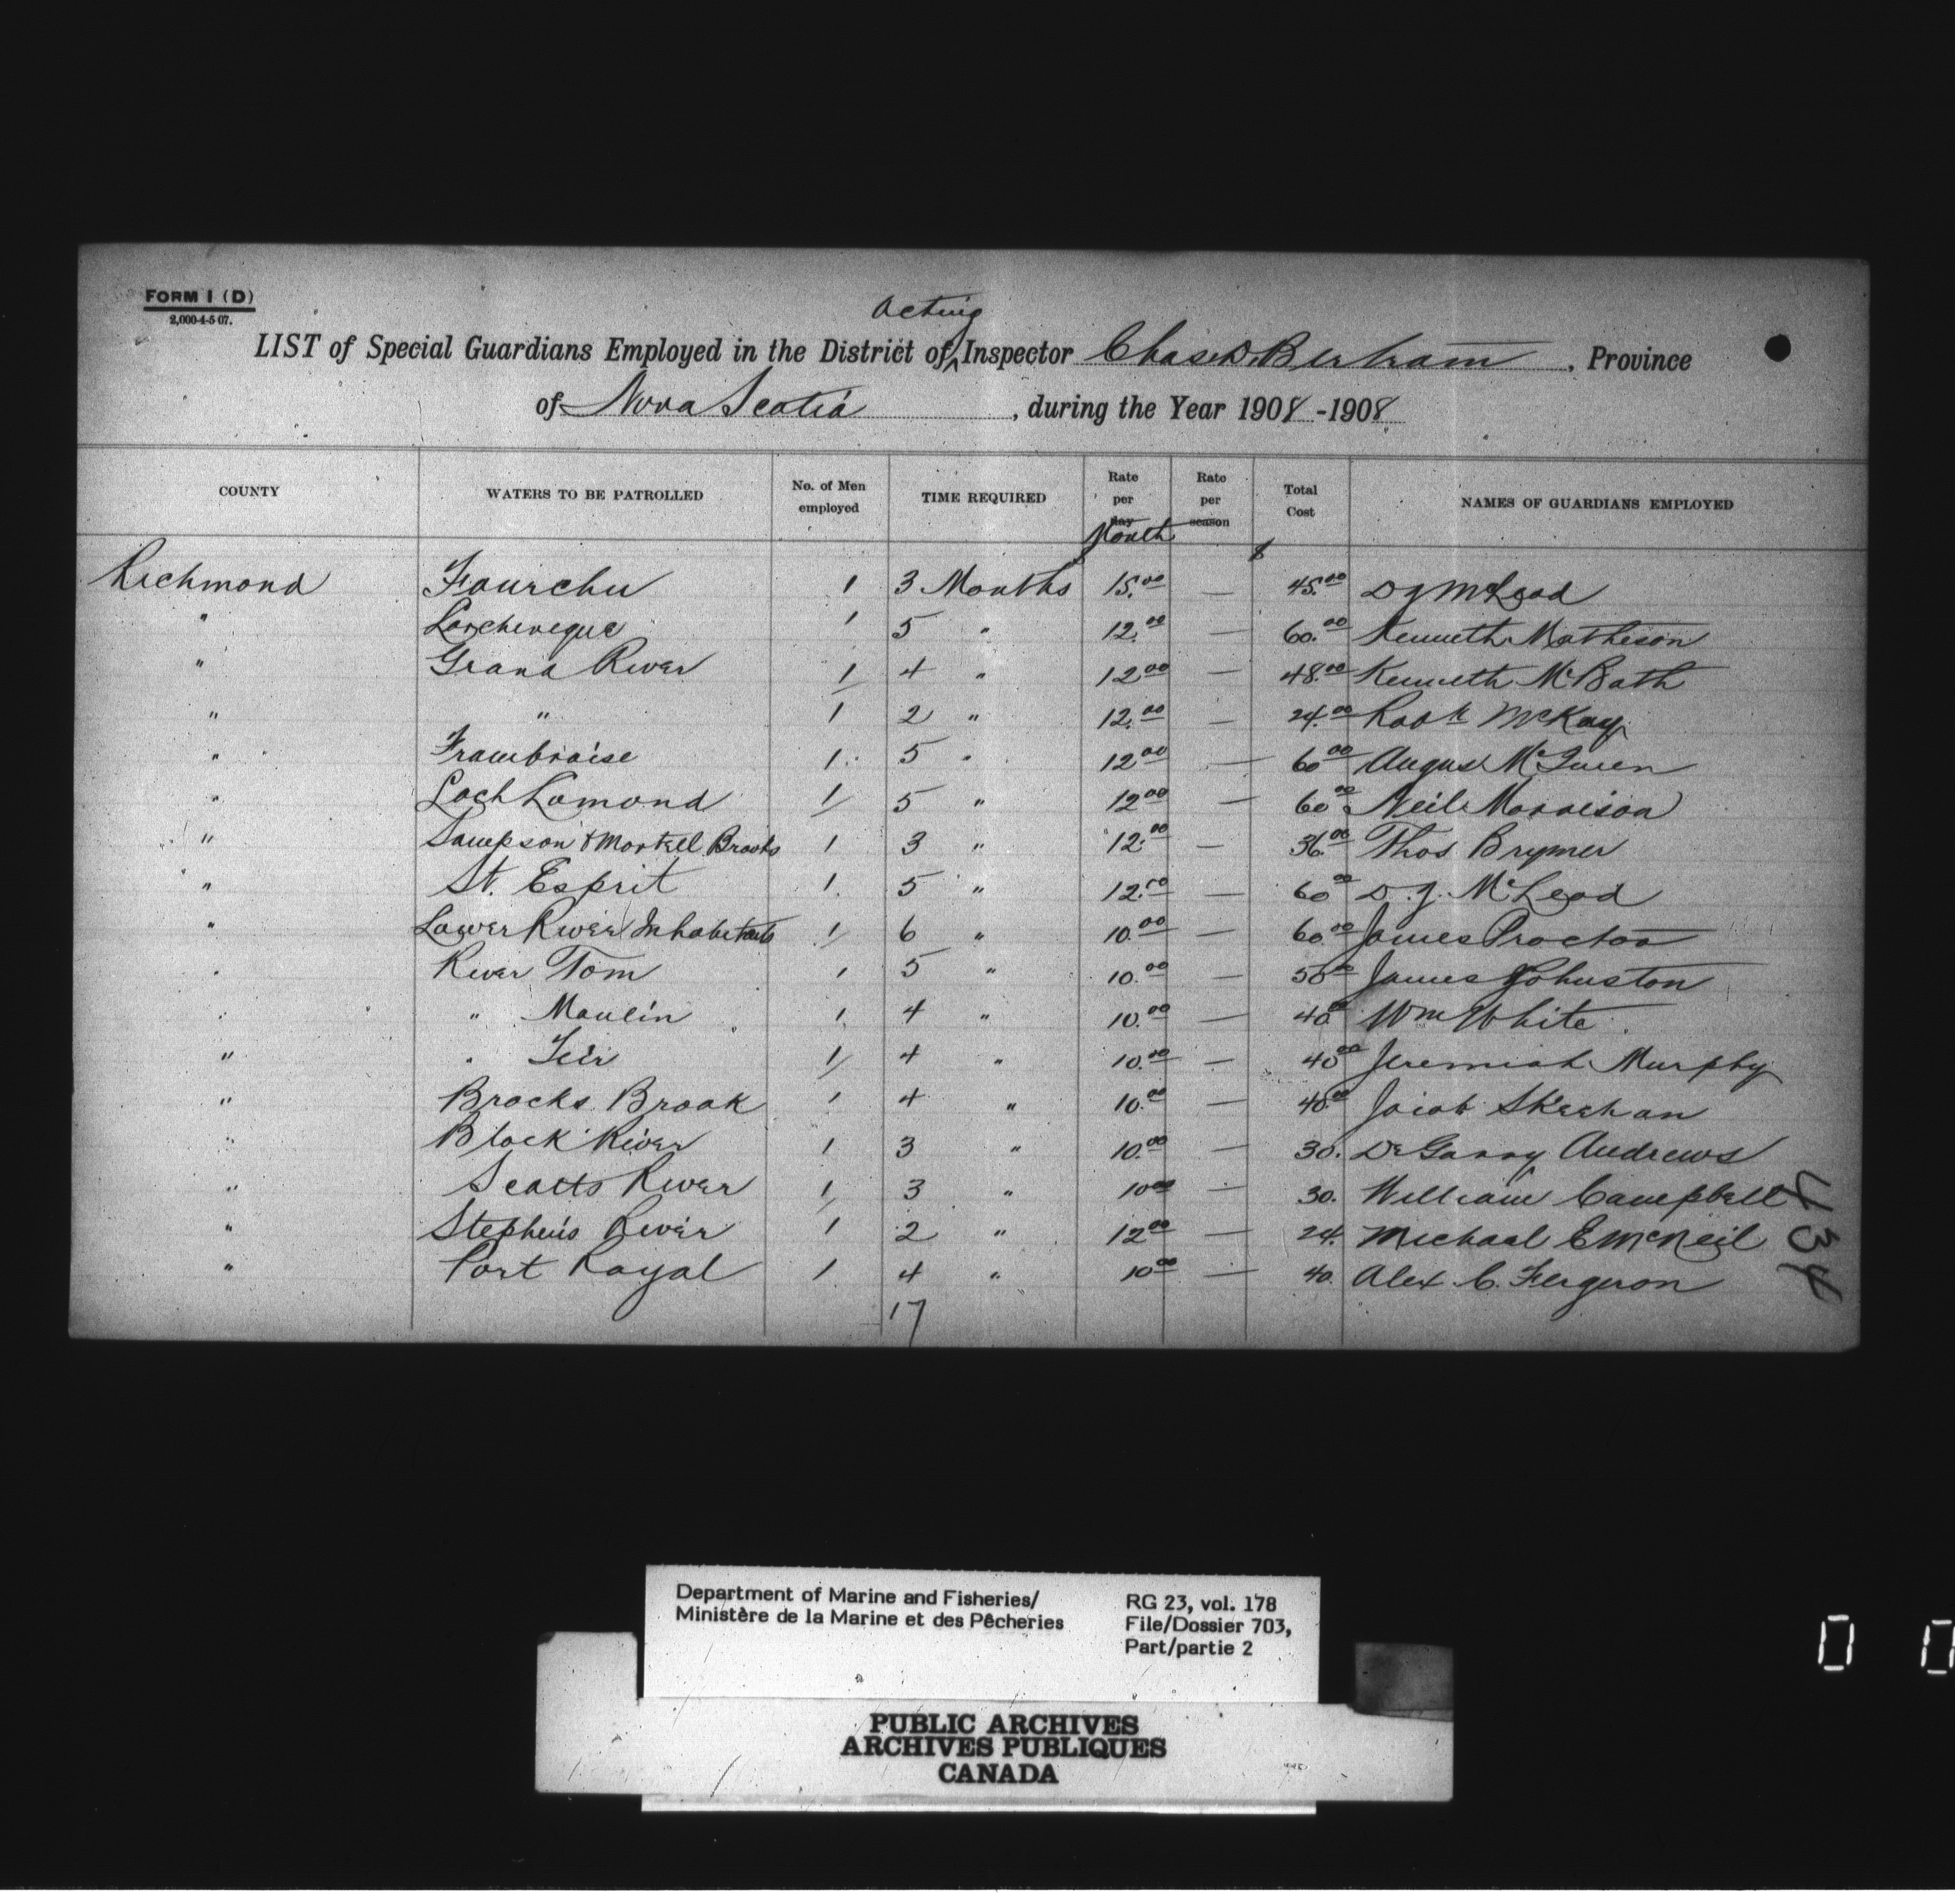 FORM 1 (D)
2,000-4-5 07.
acting
LIST of Special Guardians Employed in the District of ^ Inspector Chas. D. Bertram, Province
of Nova Scotia, during the Year 1908-1908
COUNTY WATERS TO BE PATROLLED No. of Men employed TIME REQUIRED Rate per day Month Rate per season Total Cost NAMES OF GUARDIANS EMPLOYED
Richmond Fourchu 1 3 Months 15.00 — 45.00 D J McLeod
" Larcheveque 1 5 " 12.00 — 60.00 Kenneth Matheson
" Grand River 1 4 " 12.00 — 48.00 Kenneth McBath
" " 1 2 " 12.00 — 24.00 McKay
" Framboise 1 5 " 12.00 — 60.00 Angus McQueen
" Loch Lomond 1 5 " 12.00 — 60.00 Neil Morrison
" Sampson & Martell Brooks 1 3 " 12.00 — 36.00 Thos Brymer
" St. Esprit 1 5 " 12.00 — 60.00 D. J. McLeod
" Lower River Inhabitants 1 6 " 10.00 — 60.00 James Proctor
" River Tom 1 5 " 10.00 — 50.00 James Johnston
" " Moulin 1 4 " 10.00 — 40.00 Wm White
" " 1 4 " 10.00 — 40.00 Jeremiah Murphy
" Brocks Brook 1 4 " 10.00 — 40.00 Jacob
" Black River 1 3 " 10.00 — 30. Andrews
" Scotts River 1 3 " 10.00 — 30. William Campbell
" Stephens River 1 2 " 12.00 — 24. Michael E McNeil
" Port Royal 1 4 " 10.00 — 40. Alex. C. Ferguson
17
434
Department of Marine and Fisheries/
Ministère de la Marine et des Pêcheries
RG 23, vol. 178
File/Dossier 703,
Part/partie 2
PUBLIC ARCHIVES
ARCHIVES PUBLIQUES
CANADA
0 0